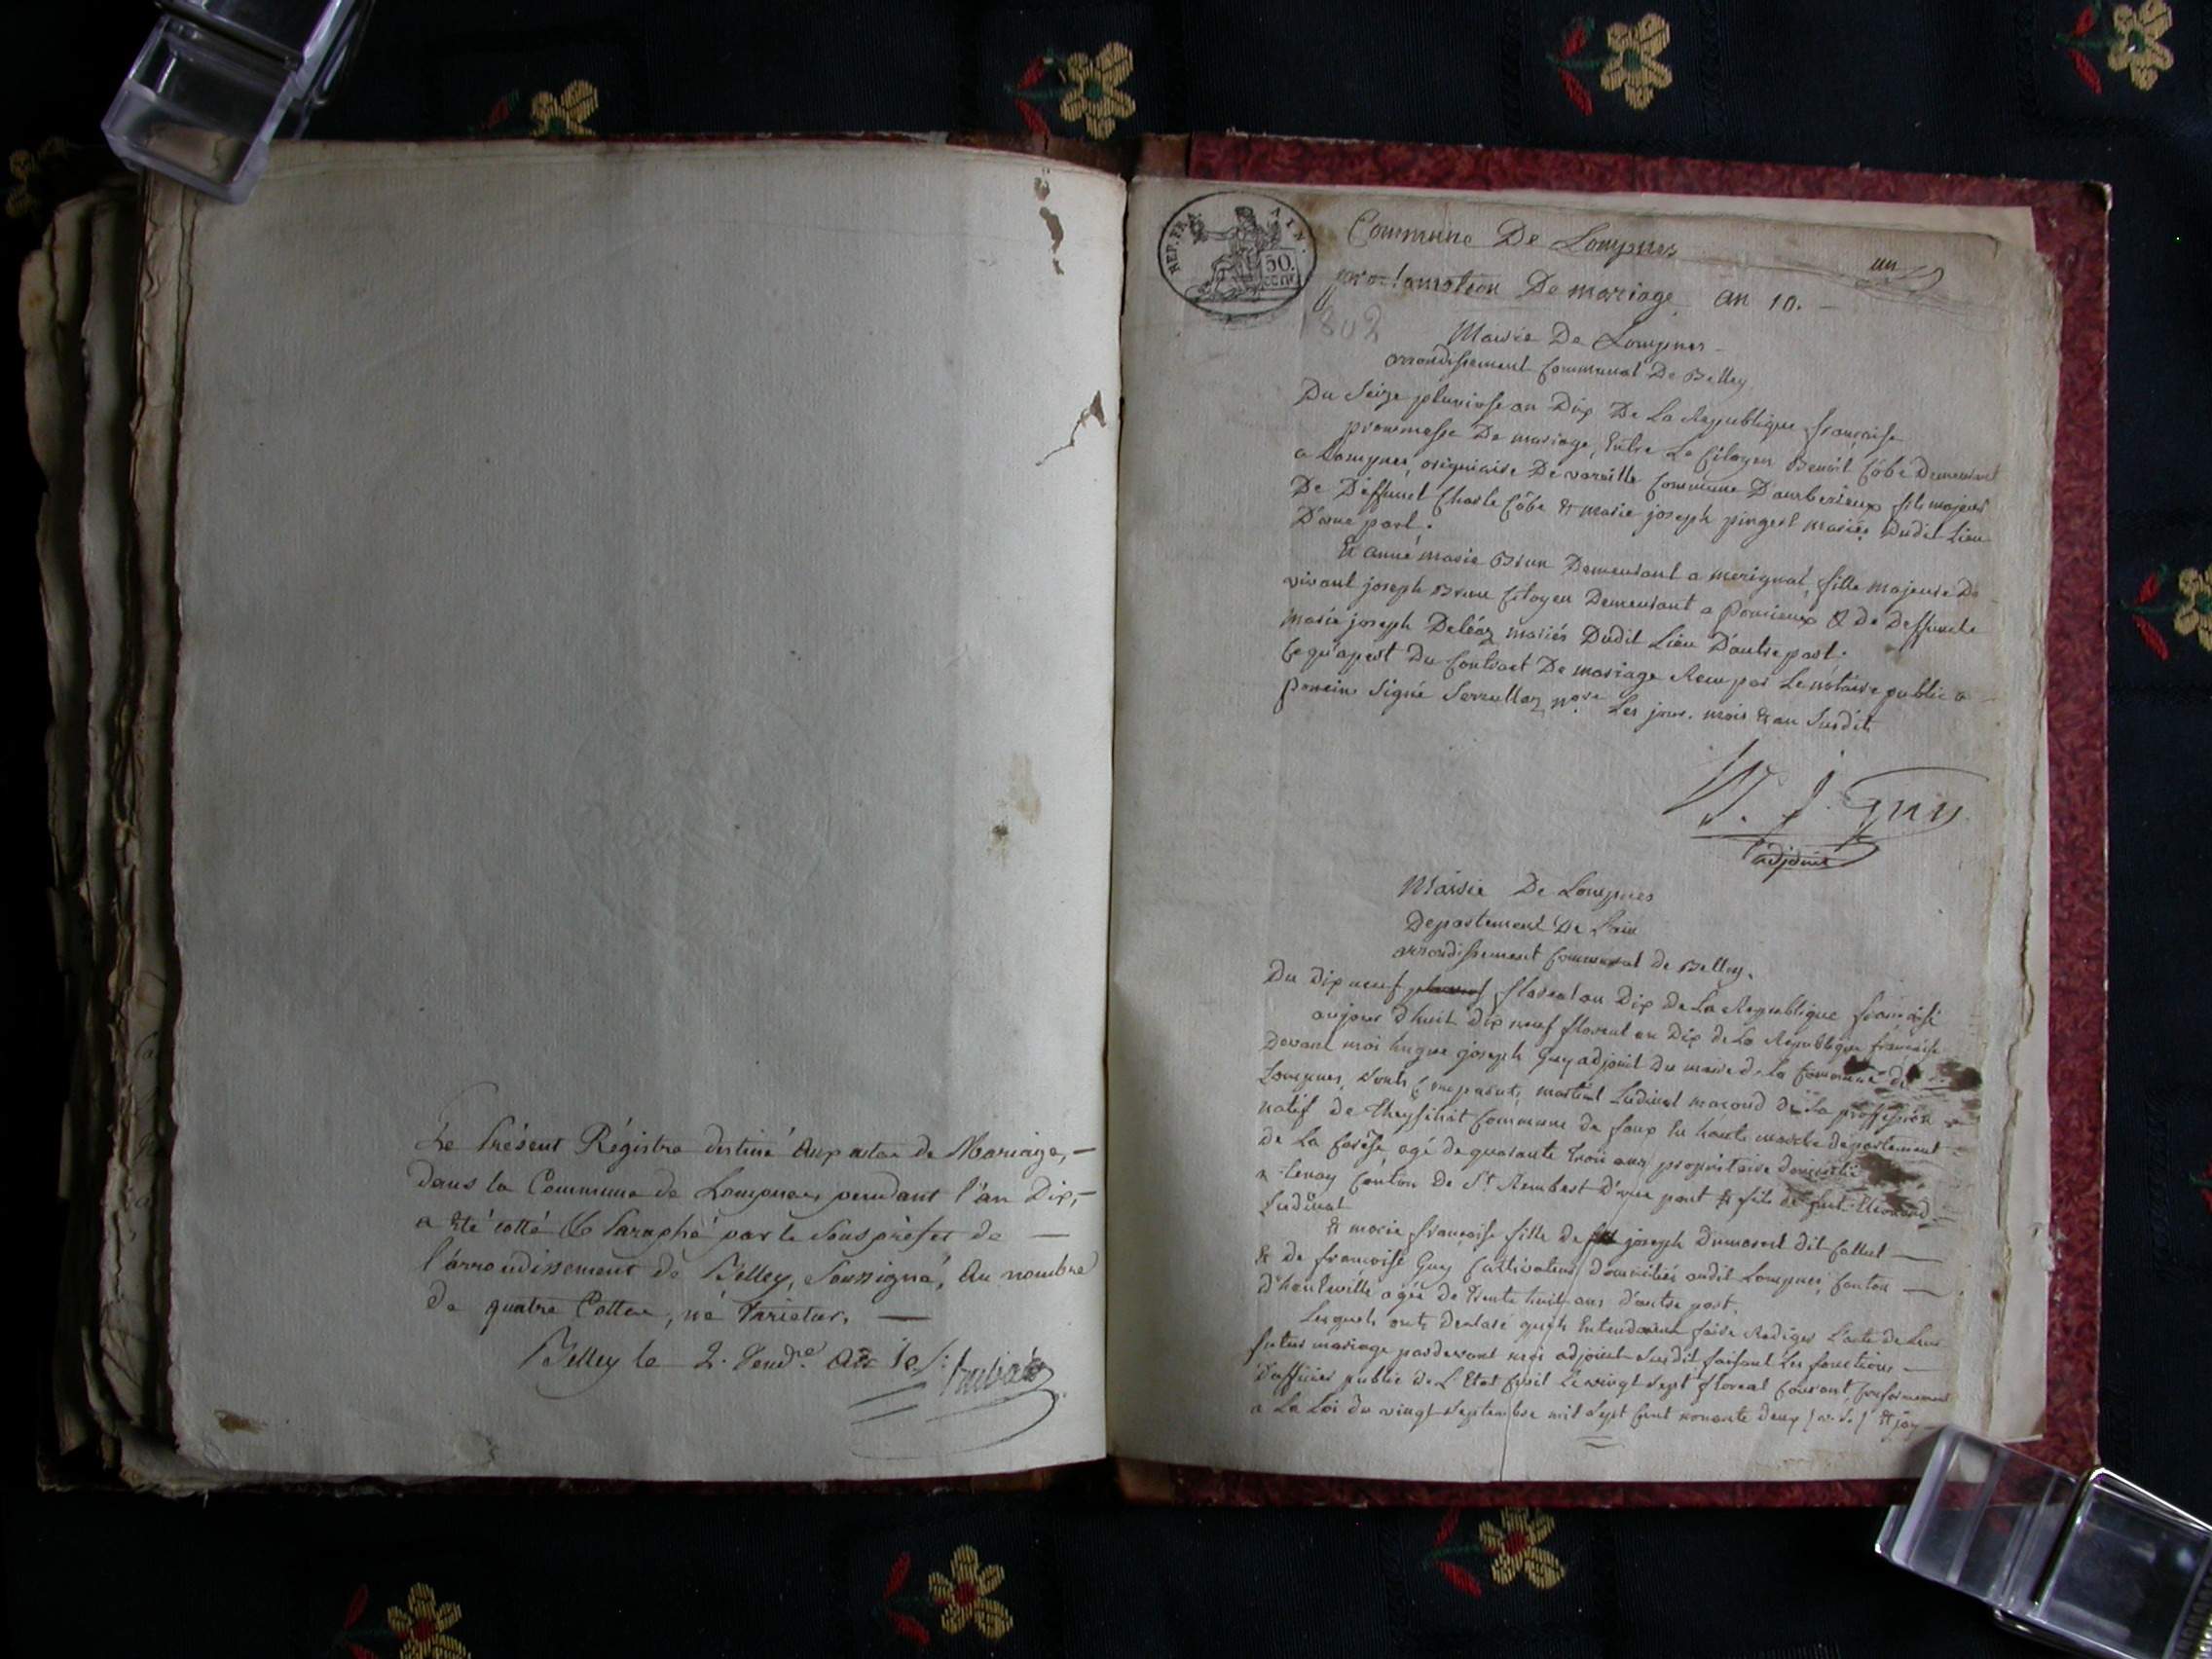 Le Présent Régistre destiné aux actes de Mariage,
dans la Commune de Lompnes pendant l'an Dix,
a été cotté & Paraphé par le Sous préfet de
l'arrondissement de Belley, Soussigné, au nombre
de quatre Cottes, né Varietur,
Belley le 2. Vend.re an 10
REP. FRA. AIN.
50. CENT
Commune De Lompnes
un
proclamation De mariage an 10.
1802
Mairie De Lompnes
arrondissement Communal De Belley
Du Seize pluviose an Dix De La Republique francaise
prommesse De mariage, Entre Le Citoyen Benoit Côbe Demeurant
a Lompnes, originaire De vareille Commune D'amberieux fils majeur
De Deffunct Charle Côbe & marie joseph pingert mariés Dudit Lieu
D'une part.
Et anne marie Brun Demeurant a merignat, fille majeure De
vivant joseph Brun Citoyen Demeurant a poncieux & de Deffuncte
marie joseph Deléaz mariés Dudit Lieu D'autre part.
Ce qu'apert Du Contract De mariage Recu par Le notaire public a
poncin Signé Serrullaz nore Les jour, mois & an Susdit
H. j. Guy
adjoint
Mairie De Lompnes
Departement De L'ain
arrondissement Communal de Belley.
Du Dix neuf floreal an Dix de La Republique francaise
aujour d'huit dix neuf floreal an Dix de La Republique francaise
Devant moi hugue joseph Guy adjoint du maire de la Commune de
Lompnes, sonts Comparuts, martial Ludinat macond de La proffession
natif de Commune de faux En haute marche departement
de La agé de quarante trois ans propriétaire domicilié
a tenay Canton de St Rembert d'une part & fils de fut
Ludinat
& marie francoise fille de joseph dumarest dit Callut
& de francoise Guy Cultivateurs domiciliés audit Lompnes, Canton
d'hauteville agée de trente huit ans d'autre part.
Lesquels onts declaré qu'ils Entendoient faire Rediger L'acte de Leur
futur mariage pardevant moi adjoint Susdit faisant Les fonctions
d'officier public de L'Etat Civil Le vingt Sept floreal Courant, Conformement
a La Loi du vingt Septembre mil Sept Cent nonante deux (v. s.) & j'ay